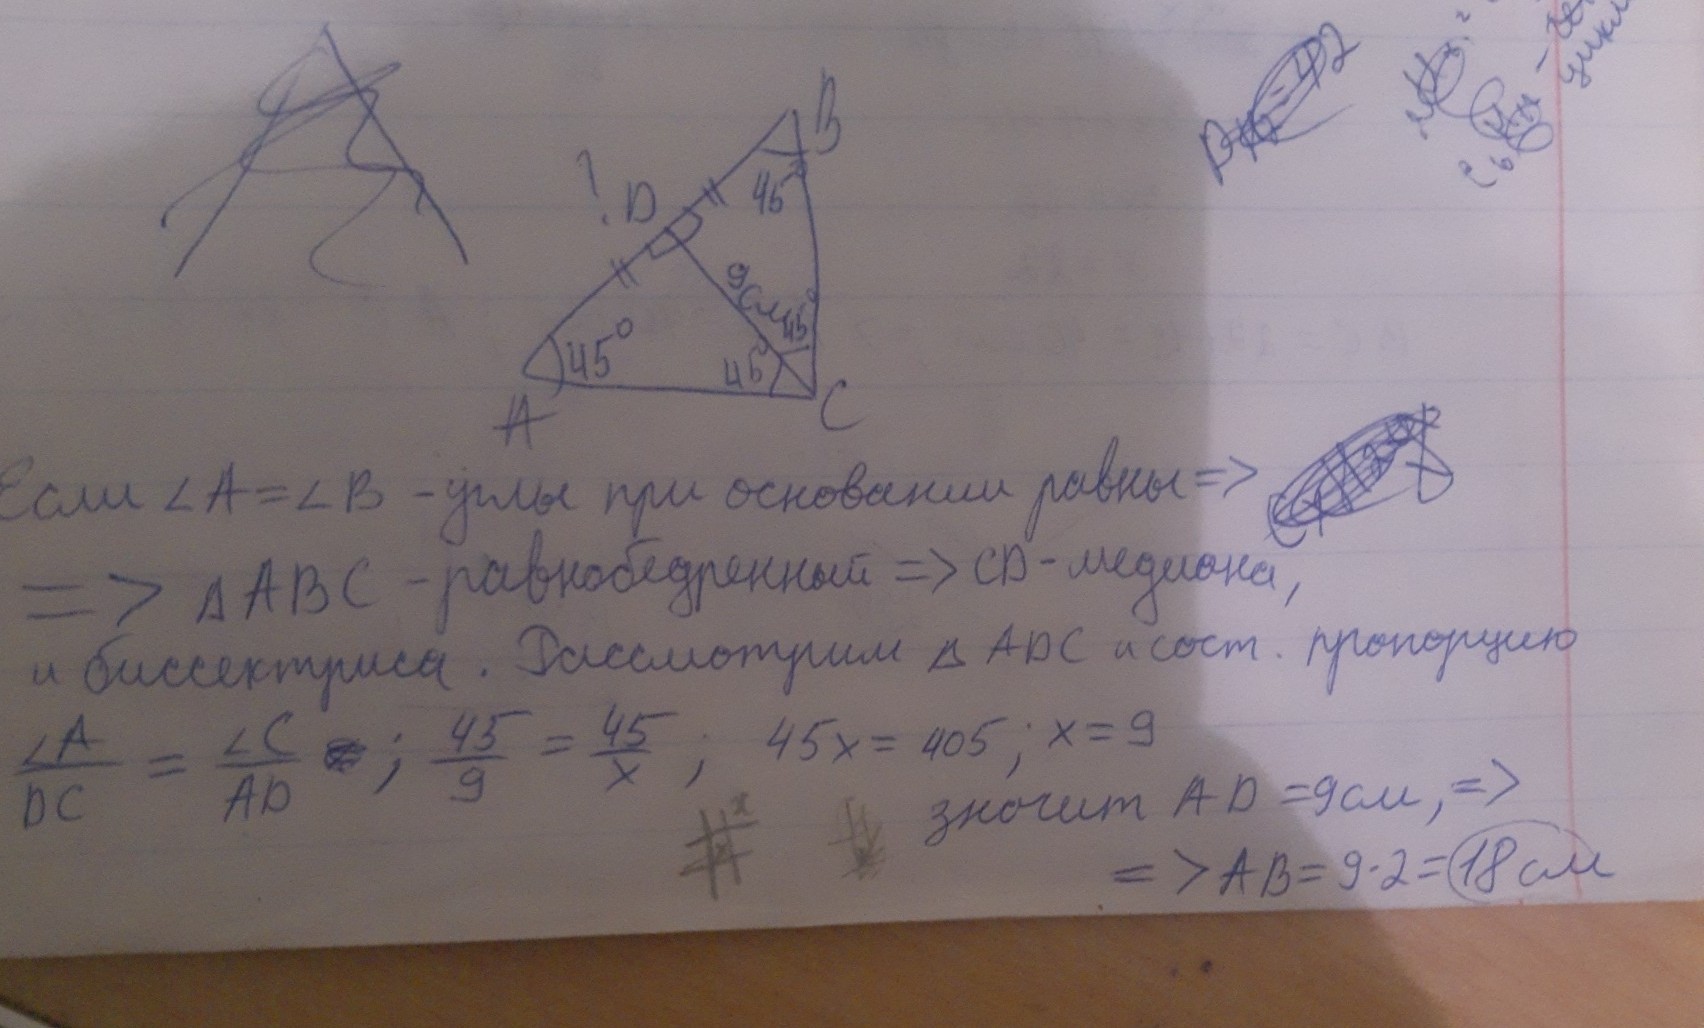 B
?
D
45°
9см
45°
45°
45°
A
C
Если ∠A=∠B - углы при основании равны =>
=> ΔABC - равнобедренный => CD - медиана,
и биссектриса. Рассмотрим ΔADC и сост. пропорцию
∠A/DC = ∠C/AD ; 45/9 = 45/x ; 45x = 405 ; x = 9
значит AD = 9см, =>
=> AB = 9·2 = 18см